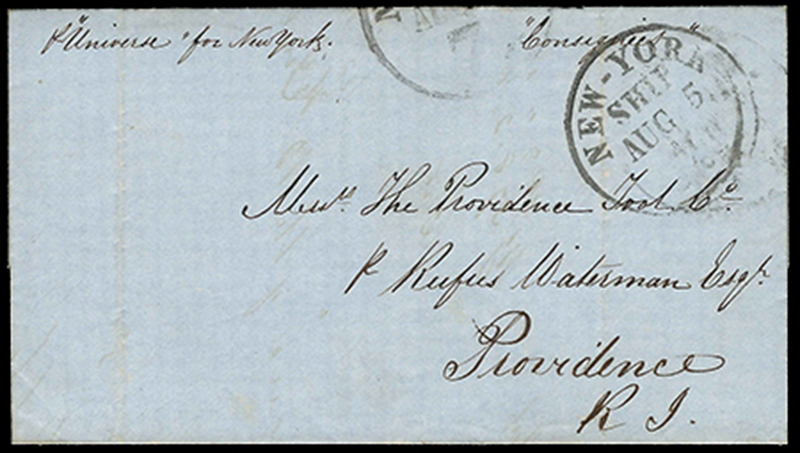 p "Universe" for New York.
"Consignees"
NEW-YORK
SHIP
AUG 5
Messrs. The Providence Tool Co.
p Rufus Waterman Esqr.
Providence
R I.